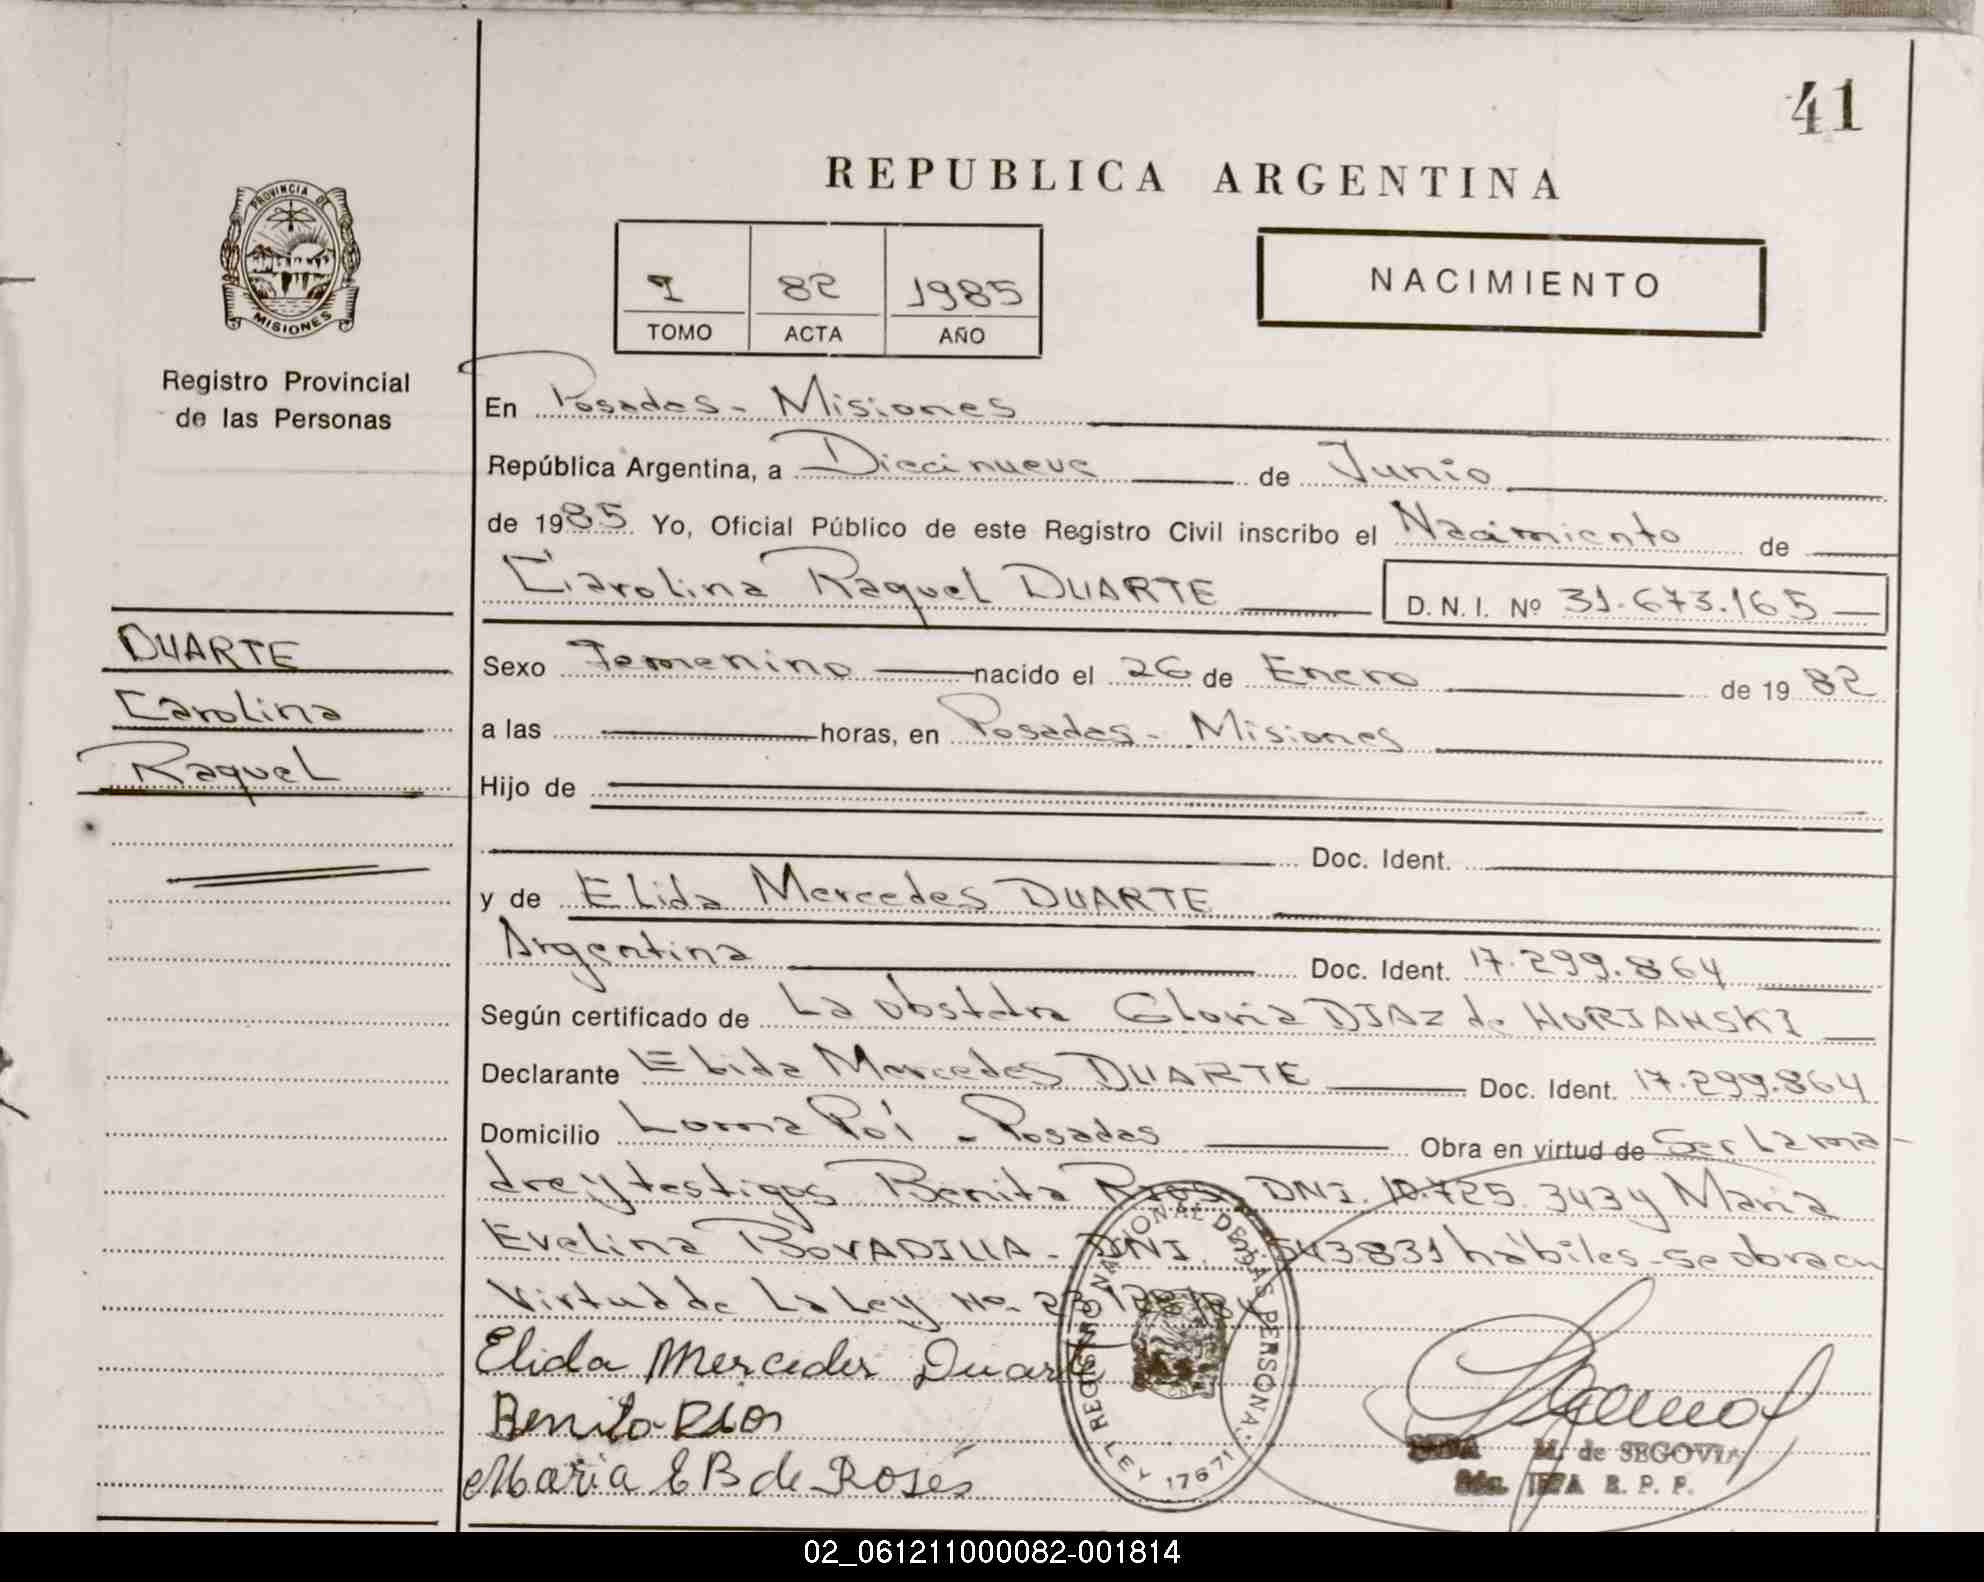 41
REPUBLICA ARGENTINA
PROVINCIA DE
MISIONES
Registro Provincial
de las Personas
I 82 1985
TOMO ACTA AÑO
NACIMIENTO
En Posadas - Misiones
República Argentina, a Diecinueve de Junio
de 1985. Yo, Oficial Público de este Registro Civil inscribo el Nacimiento de
Carolina Raquel DUARTE D. N. I. Nº 31.673.165
DUARTE
Carolina
Raquel
Sexo Femenino nacido el 26 de Enero de 1982
a las horas, en Posadas - Misiones
Hijo de
Doc. Ident.
y de Elida Mercedes DUARTE
Argentina Doc. Ident. 17.299.864
Según certificado de La obstetra Gloria DIAZ de HORIANSKI
Declarante Elida Mercedes DUARTE Doc. Ident. 17.299.864
Domicilio Loma Poi - Posadas Obra en virtud de Ser La ma-
dre y testigos Benita Rios DNI. 10.725.343 y Maria
Evelina BOVADILLA - DNI. 543831 hábiles - se obra en
Virtud de La Ley Nº 23.128/84
Elida Mercedes Duarte
Benita Rios
Maria E B de Rosés
REGISTRO NACIONAL DE LAS PERSONAS
LEY 17671
M. de SEGOVIA
JEFA R. P. P.
02_061211000082-001814